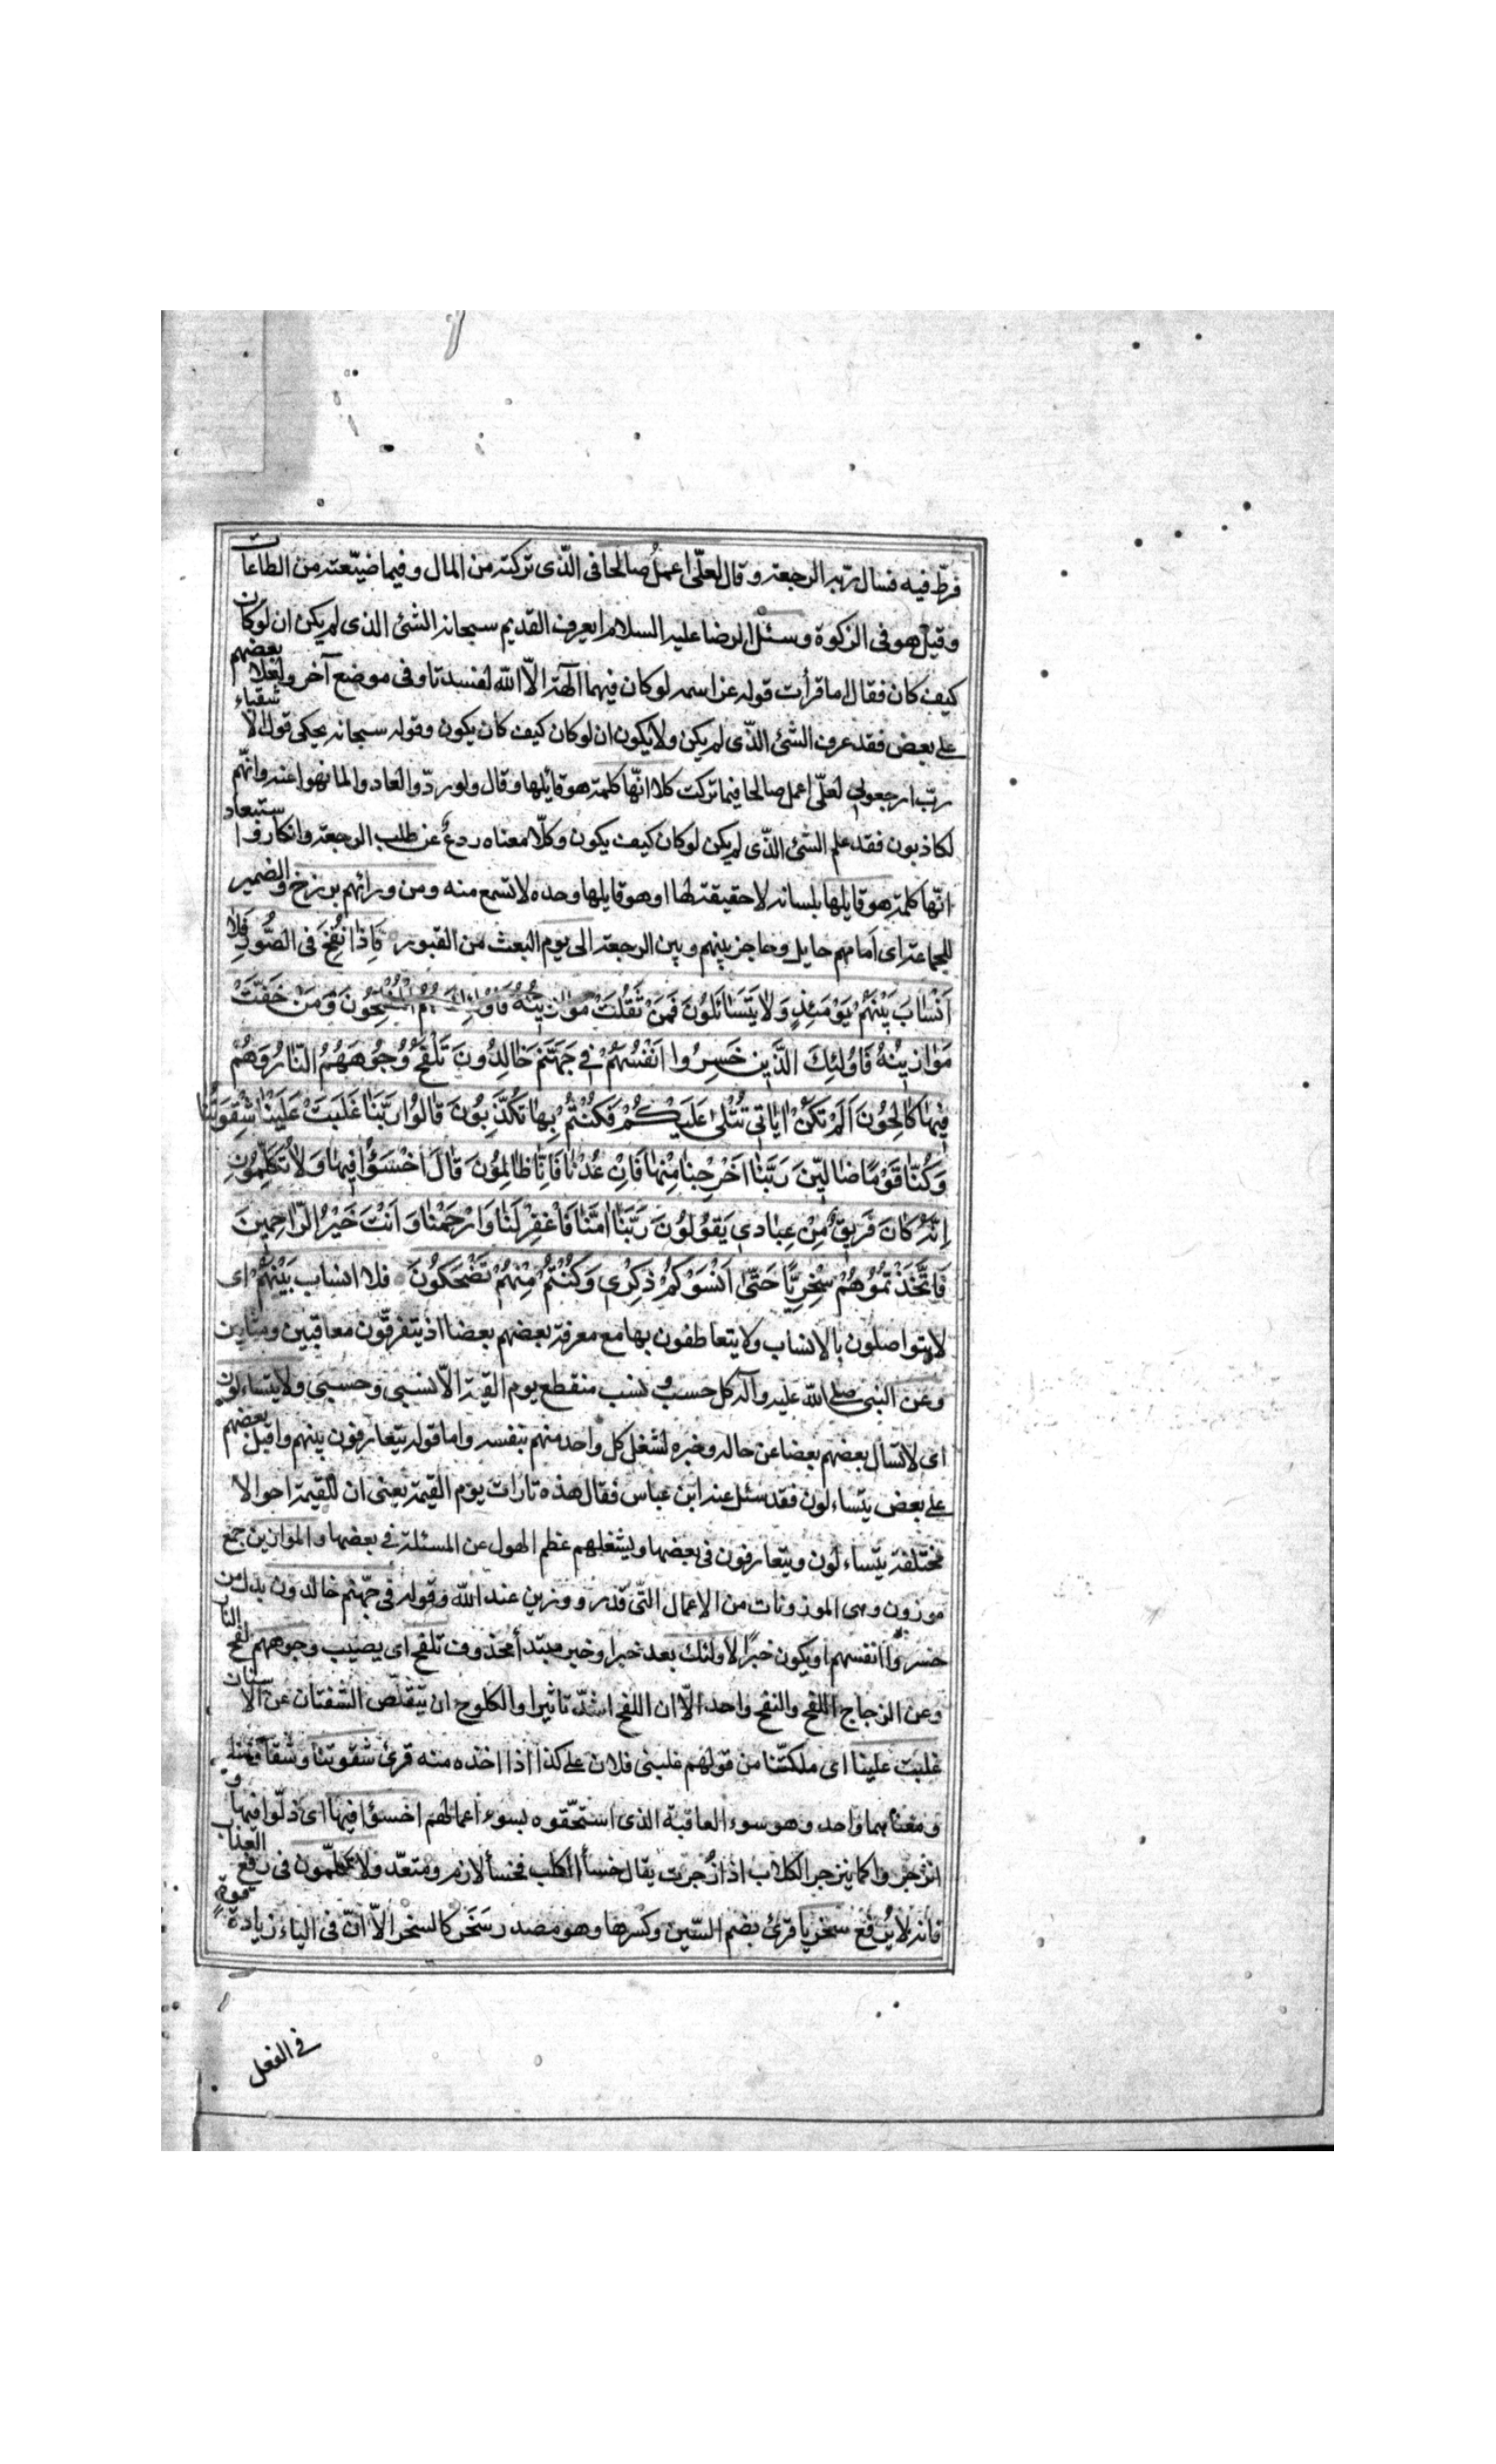 فرّط فيه فسال ربّه الرجعة وقال لعلّى اعمل صالحا فى الّذى تركته من المال و فيما ضيّعته من الطاعات
وقيل هو فى الزكوة وسئل الرضا عليه السلام ايعرف القديم سبحانه الشئ الذى لم يكن ان لو كان
كيف كان فقال اما قرأت قوله عز اسمه لو كان فيهما آلهة الّا اللّه لفسدتا وفى موضع آخر ولعلا بعضهم
على بعض فقد عرف الشئ الذّى لم يكن ولا يكون ان لو كان كيف كان يكون وقوله سبحانه يحكى قول الاشقياء
ربّ ارجعونى لعلّى اعمل صالحا فيما تركت كلا انّها كلمة هو قائلها وقال ولو ردّوا لعادوا لما نهوا عنه وانّهم
لكاذبون فقد علم الشئ الذّى لم يكن لو كان كيف يكون وكلّا معناه ردع عن طلب الرجعة وانكار واستبعاد
انّها كلمة هو قايلها بلسانه لا حقيقة لها او هو قايلها وحده لا تسمع منه ومن ورائهم برزخ والضمير
للجماعة اى امامهم حايل وحاجز بينهم وبين الرجعة الى يوم البعث من القبور فَاِذَا نُفِخَ فى الصُّورِ فَلا
اَنْسابَ بَيْنَهُمْ يَوْمَئِذٍ وَلا يَتَسَائَلُونَ فَمَنْ ثَقُلَتْ مَوازينُهُ فَاُولئِكَ هُمُ الْمُفْلِحُونَ وَمَنْ خَفَّتْ
مَوازينُهُ فَاُولئِكَ الَّذينَ خَسِرُوا اَنْفُسَهُمْ فى جَهَنَّمَ خالِدُونَ تَلْفَحُ وُجُوهَهُمُ النّارُ وَهُمْ
فيها كالِحُونَ اَلَمْ تَكُنْ اياتى تُتْلى عَلَيْكُمْ فَكُنْتُمْ بِها تُكَذِّبُونَ قالُوا رَبَّنا غَلَبَتْ عَلَيْنا شِقْوَتُنا
وَكُنّا قَوْمًا ضالّينَ رَبَّنا اَخْرِجْنا مِنْها فَاِنْ عُدْنا فَاِنّا ظالِمُونَ قالَ اخْسَؤُا فيها وَلا تُكَلِّمُونِ
اِنَّهُ كانَ فَريقٌ مِنْ عِبادى يَقُولُونَ رَبَّنا امَنّا فَاغْفِرْ لَنا وَارْحَمْنا وَاَنْتَ خَيْرُ الرّاحِمينَ
فَاتَّخَذْتُمُوهُمْ سِخْرِيًّا حَتّى اَنْسَوْكُمْ ذِكْرى وَكُنْتُمْ مِنْهُمْ تَضْحَكُونَ فلا انساب بَيْنَهُمْ اى
لا يتواصلون بالانساب ولا يتعاطفون بها مع معرفة بعضهم بعضا اذ يتفرّقون معاقبين ومثابين
وعن النبى صلى اللّه عليه وآله كل حسب و نسب منقطع يوم القيمة الّا نسبى وحسبى ولا يتساءلون
اى لا تسأل بعضهم بعضا عن حاله وخبره لشغل كل واحد منهم بنفسه واما قوله يتعارفون بينهم واقبل بعضهم
على بعض يتساءلون فقد سئل عنه ابن عباس فقال هذه تارات يوم القيمة يعنى ان للقيمة احوالا
مختلفة يتساءلون ويتعارفون فى بعضها ويشغلهم عظم الهول عن المسئلة فى بعضها والموازين جمع
موزون وهى الموزونات من الاعمال التّى قدر ووزن عند اللّه وقوله فى جهنم خالدون بدل من
خسروا انفسهم او يكون خبرًا لاولئك بعد خبر او خبر مبتدأ محذوف تلفح اى يصيب وجوههم لفح النار
وعن الزجاج اللفح والنفح واحد الّا ان اللفح اشدّ تاثيرا والكلوح ان يتقلّص الشفتان عن الاسنان
غلبت علينا اى ملكتنا من قولهم غلبنى فلان على كذا اذا اخذه منه قرئ شقوتنا وشقاوتنا
ومعناهما واحد وهو سوء العاقبة الذى استحّقوه بسوء اعمالهم اخسؤا فيها اى ذلّوا فيها و
انزجروا كما ينزجر الكلاب اذا زُجرت يقال خسأ الكلب فخسأ لازم ومتعّد ولا تكلّمون فى رفع العذاب
فانه لا يُرفع سخريا قرئ بضم السّين وكسرها وهو مصدر سَخَر كالسخر الّا انّ فى الياء زيادة قوة
فى الفعل